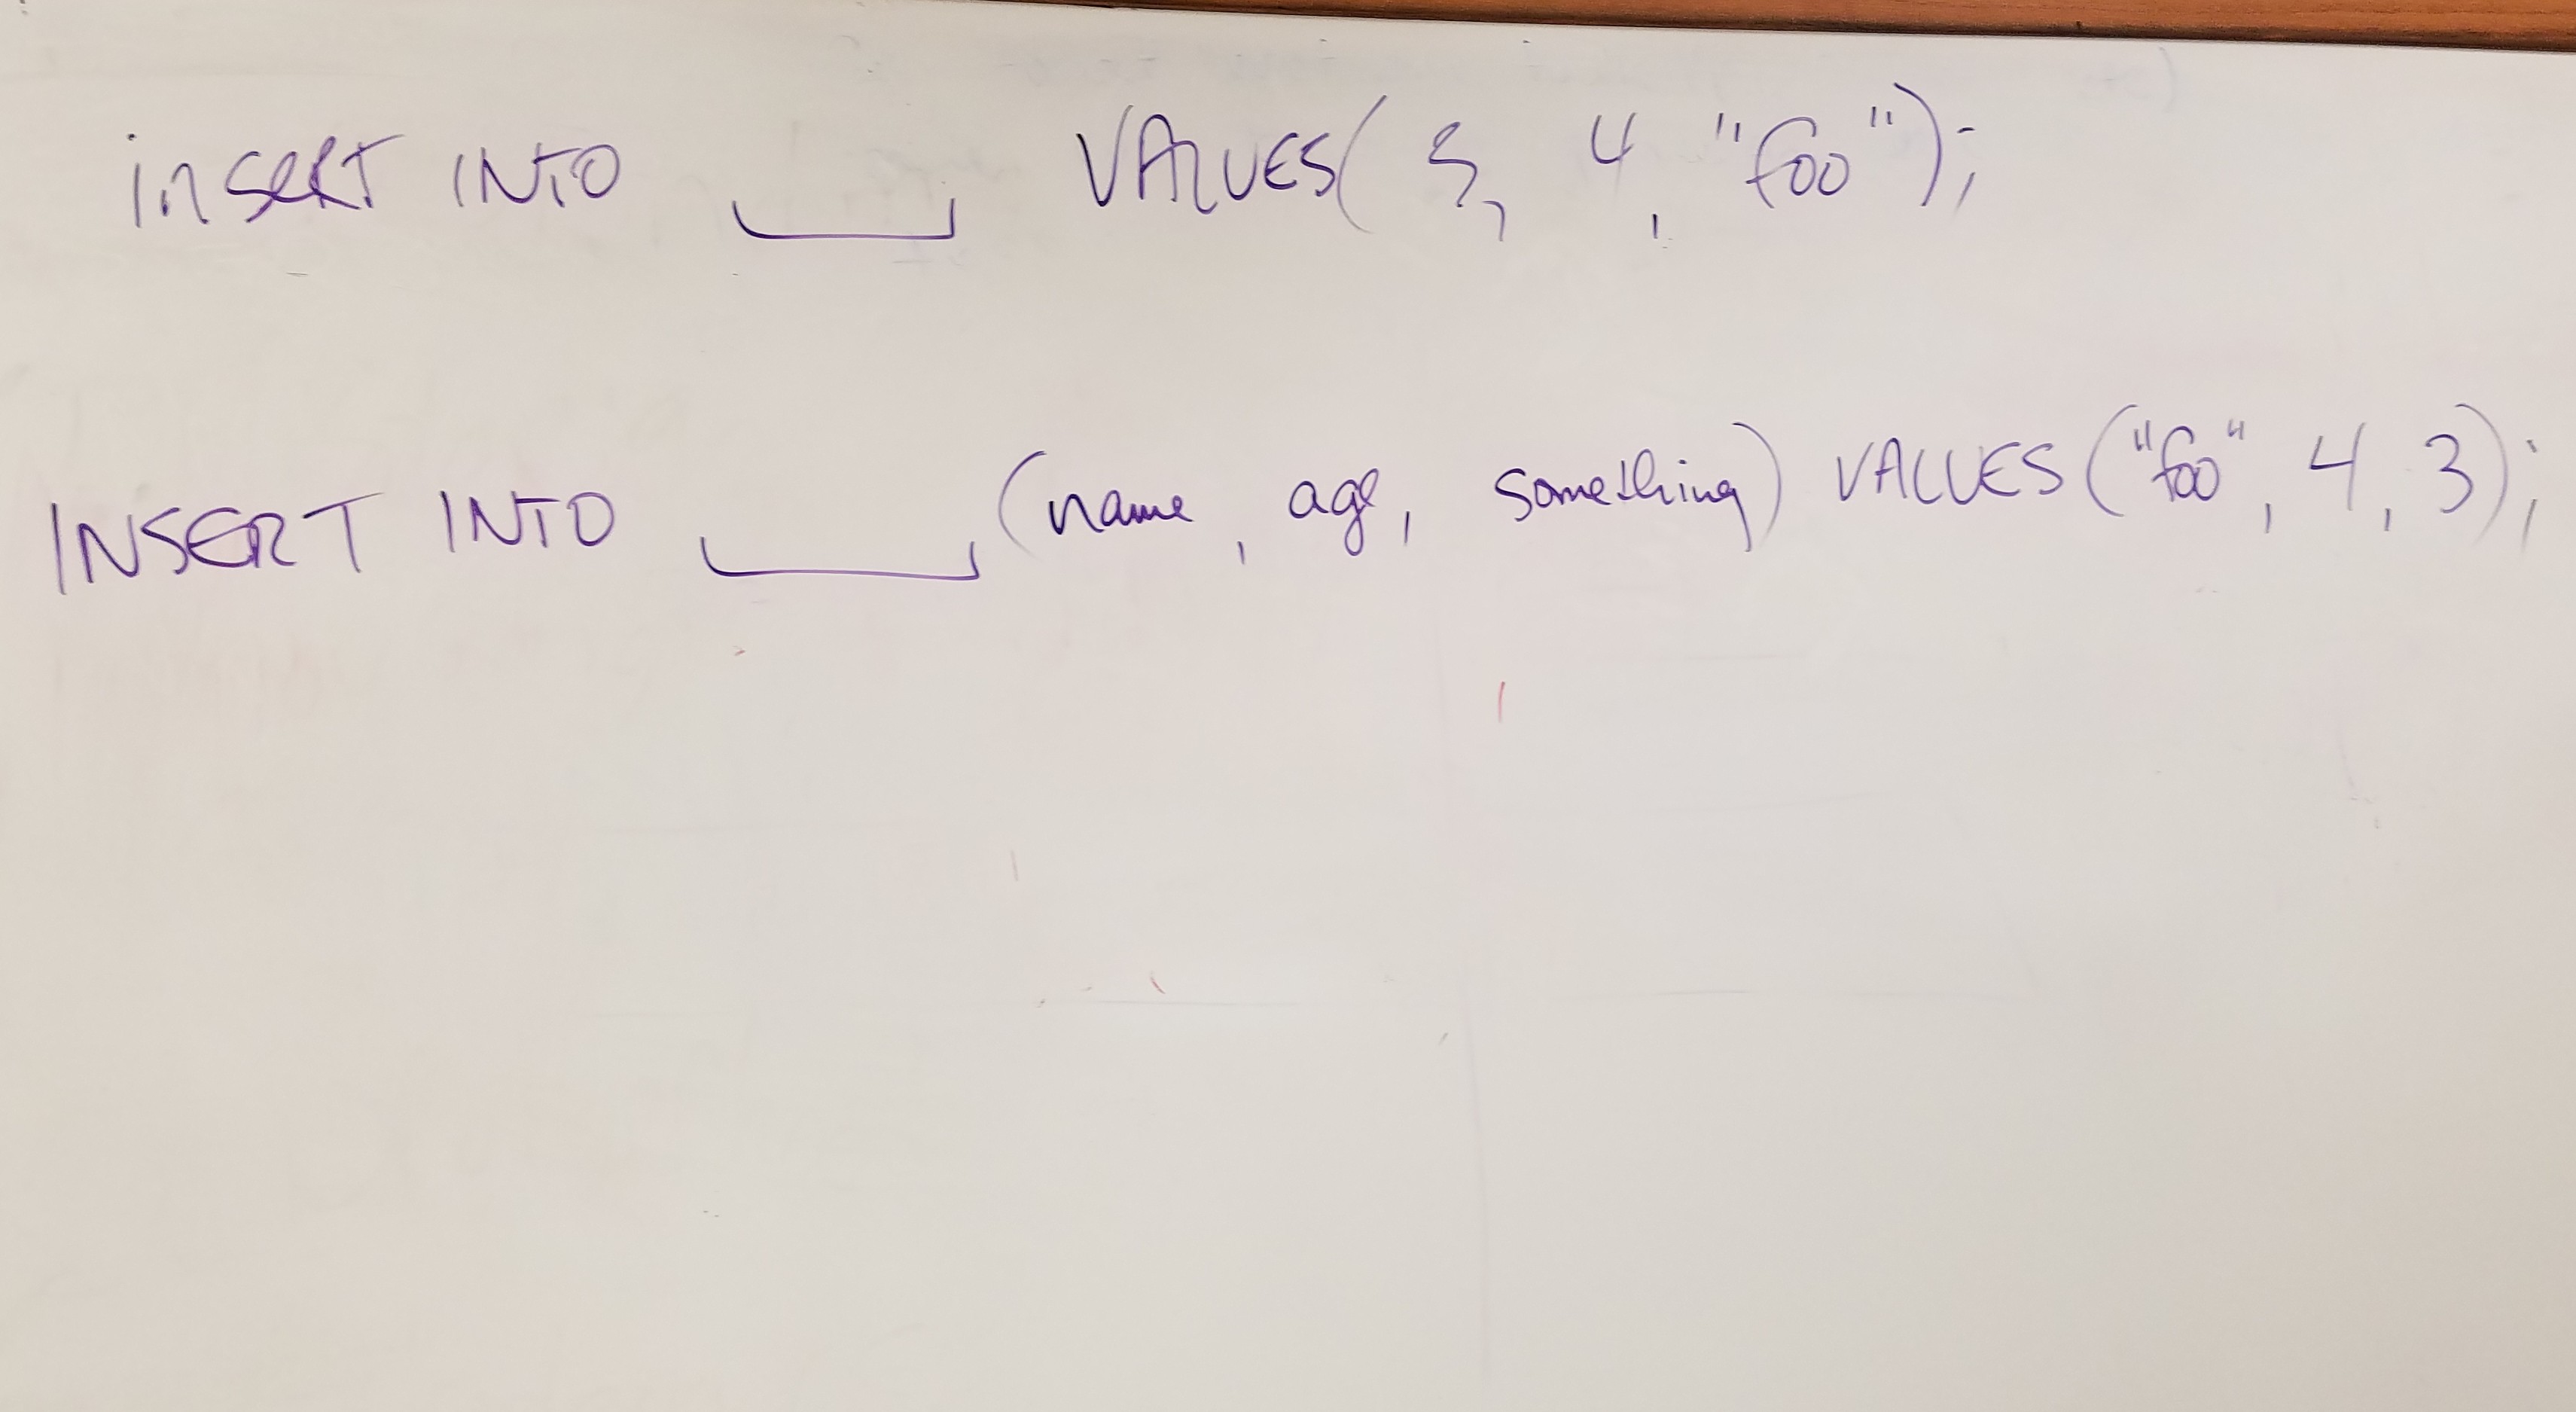 insert INTO ___ VALUES( 3, 4, "foo");
INSERT INTO ___ (name, age, something) VALUES ("foo", 4, 3);